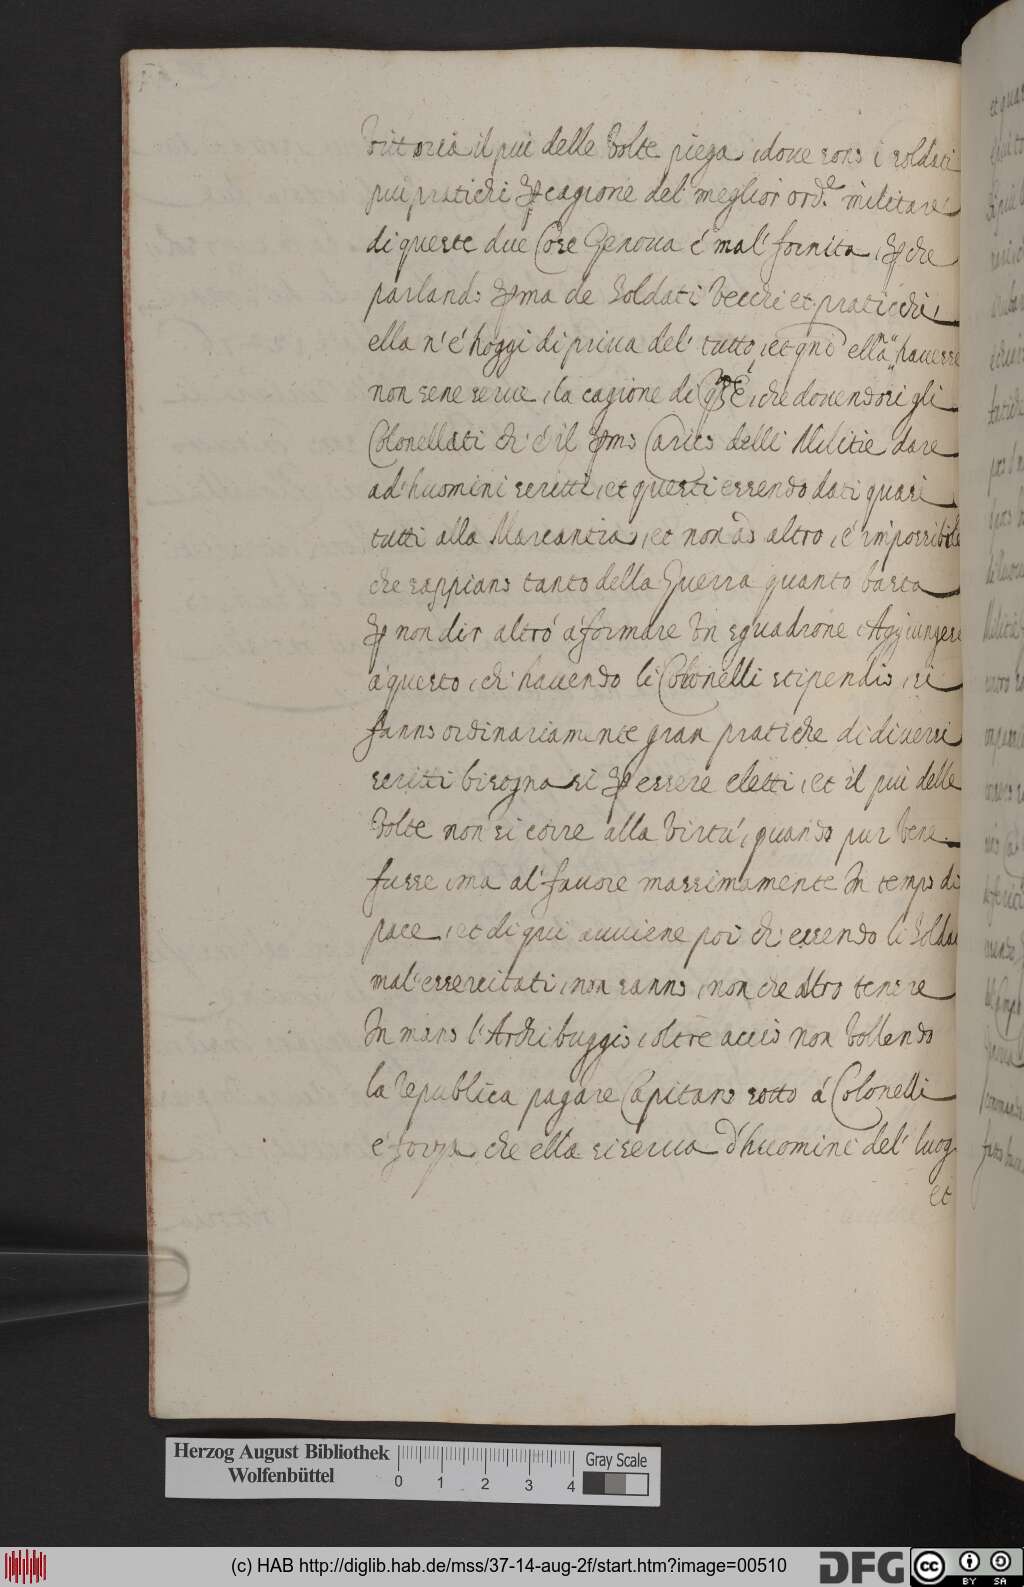 Vittoria il piu delle Volte piega, doue sono i soldati
piu pratichi ꝑ cagione del' meglior ord.e militare
di queste due Cose Genoua é mal' fornita, ꝑche
parlando ꝑma de Soldati Vecchi et pratichi,
ella n'é hoggi di priua del' tutto, et qn̄o ella n' hauesse
non sene serue, la cagione di
che douendosi gli
Colonellati ch' é il ꝑmo Carico delli Militie dare
ad' huomini scritti, et questi essendo dati quasi
tutti alla Marcantia, et non ad altro, é impossibile
che sappiano tanto della Guerra quanto basta
ꝑ non dir altro á formare Vn squadrone, Aggiungere
á questo, ch' hauendo li Colonelli stipendio, si
fanno ordinariamente gran pratiche di diuersi
scritti bisogna si ꝑ essere eletti, et il piu delle
Volte non si corre alla Virtú, quando pur bene
fusse, ma al' fauore massimamente In tempo di
pace, et di qui auuiene poi ch' essendo li Soldati
mal' essercitati, non sanno, non che altro tenere
In mano l'Archibuggio, oltre accio non Vollendo
la Republica pagare Capitano sotto á Colonelli
é forza che ella si serua d'huomini del' luog
et
Herzog August Bibliothek
Wolfenbüttel
0 1 2 3 4
Gray Scale
(c) HAB http://diglib.hab.de/mss/37-14-aug-2f/start.htm?image=00510
DFG
cc BY SA